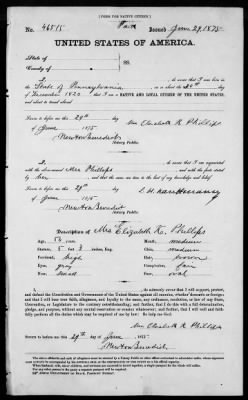 [FORM FOR NATIVE CITIZEN.]
No. 46515 Issued June 29, 1875
UNITED STATES OF AMERICA.
State of
County of
SS.
I, do swear that I was born in
the State of Pennsylvania on the 24th day
of December 1820 that I am a NATIVE AND LOYAL CITIZEN OF THE UNITED STATES,
and about to travel abroad
Sworn to before me this 29th day
of June 1875
Mrs Elizabeth K Phillips
Newton Benedict
Notary Public.
I, do swear that I am
acquainted with the above-named Mrs Phillips and with the facts stated
by her and that the same are true to the best of my knowledge and belief.
Sworn to before me this 29th day
of June 1875
Newton Benedict
Notary Public.
Description of Mrs Elizabeth K. Phillips
Age, Mouth, medium
Stature, 5 ft 3 Inches, Eng. Chin, medium
Forehead, high Hair, brown
Eyes, gray Complexion, fair
Nose, small Face, oval
I, do solemnly swear that I will support, protect,
and defend the Constitution and Government of the United States against all enemies, whether domestic or foreign;
and that I will bear true faith, allegiance, and loyalty to the same, any ordinance, resolution, or law of any State,
Convention, or Legislature to the contrary notwithstanding; and further, that I do this with a full determination,
pledge, and purpose, without any mental reservation or evasion whatsoever; and further, that I will well and faithfully
perform all the duties which may be required of me by law: So help me God.
Mrs Elizabeth K Phillips
Sworn to before me this 29th day of June 1875
Newton Benedict
Notary Public.